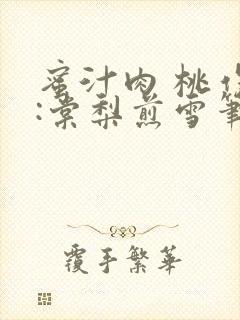 蜜汁肉桃
:棠梨煎雪筆
覆手繁華